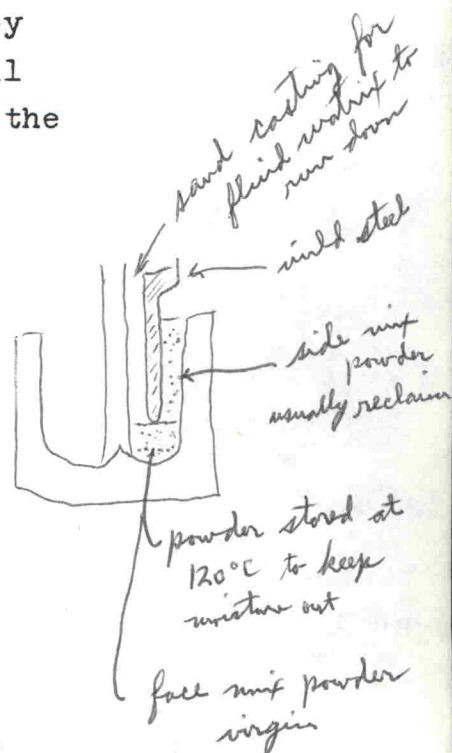 y
l
the
sand casting for
fluid matrix to
run down
mild steel
side mix
powder
usually reclaim
powder stored at
120°C to keep
moisture out
face mix powder
virgin